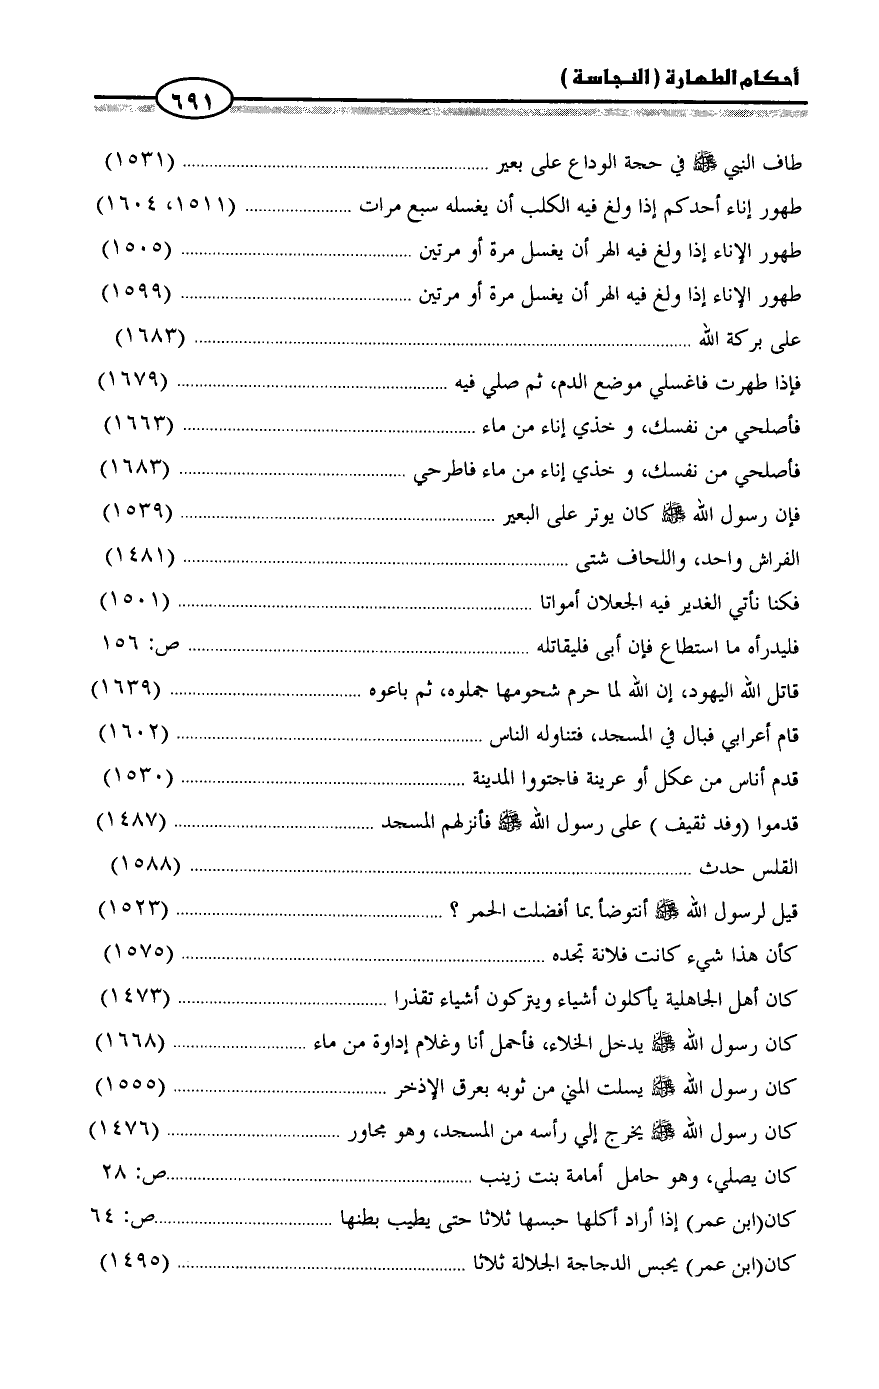 أحكام الطهارة (النجاسة)
٦٩١
طاف النبي ﷺ في حجة الوداع على بعير ........ (١٥٣١)
طهور إناء أحدكم إذا ولغ فيه الكلب أن يغسله سبع مرات ........ (١٥١١، ١٦٠٤)
طهور الإناء إذا ولغ فيه الهر أن يغسل مرة أو مرتين ........ (١٥٠٥)
طهور الإناء إذا ولغ فيه الهر أن يغسل مرة أو مرتين ........ (١٥٩٩)
على بركة الله ........ (١٦٨٣)
فإذا طهرت فاغسلي موضع الدم، ثم صلي فيه ........ (١٦٧٩)
فأصلحي من نفسك، و خذي إناء من ماء ........ (١٦٦٣)
فأصلحي من نفسك، و خذي إناء من ماء فاطرحي ........ (١٦٨٣)
فإن رسول الله ﷺ كان يوتر على البعير ........ (١٥٣٩)
الفراش واحد، واللحاف شتى ........ (١٤٨١)
فكنا نأتي الغدير فيه الجعلان أمواتا ........ (١٥٠١)
فليدرأه ما استطاع فإن أبى فليقاتله ........ ص: ١٥٦
قاتل الله اليهود، إن الله لما حرم شحومها جملوه، ثم باعوه ........ (١٦٣٩)
قام أعرابي فبال في المسجد، فتناوله الناس ........ (١٦٠٢)
قدم أناس من عكل أو عرينة فاجتووا المدينة ........ (١٥٣٠)
قدموا (وفد ثقيف ) على رسول الله ﷺ فأنزلهم المسجد ........ (١٤٨٧)
القلس حدث ........ (١٥٨٨)
قيل لرسول الله ﷺ أنتوضأ بما أفضلت الحمر ؟ ........ (١٥٢٣)
كأن هذا شيء كانت فلانة تجده ........ (١٥٧٥)
كان أهل الجاهلية يأكلون أشياء ويتركون أشياء تقذرا ........ (١٤٧٣)
كان رسول الله ﷺ يدخل الخلاء، فأحمل أنا وغلام إداوة من ماء ........ (١٦٦٨)
كان رسول الله ﷺ يسلت المني من ثوبه بعرق الإذخر ........ (١٥٥٥)
كان رسول الله ﷺ يخرج إلي رأسه من المسجد، وهو مجاور ........ (١٤٧٦)
كان يصلي، وهو حامل أمامة بنت زينب ........ ص: ٢٨
كان(ابن عمر) إذا أراد أكلها حبسها ثلاثا حتى يطيب بطنها ........ ص: ٦٤
كان(ابن عمر) يحبس الدجاجة الجلالة ثلاثا ........ (١٤٩٥)